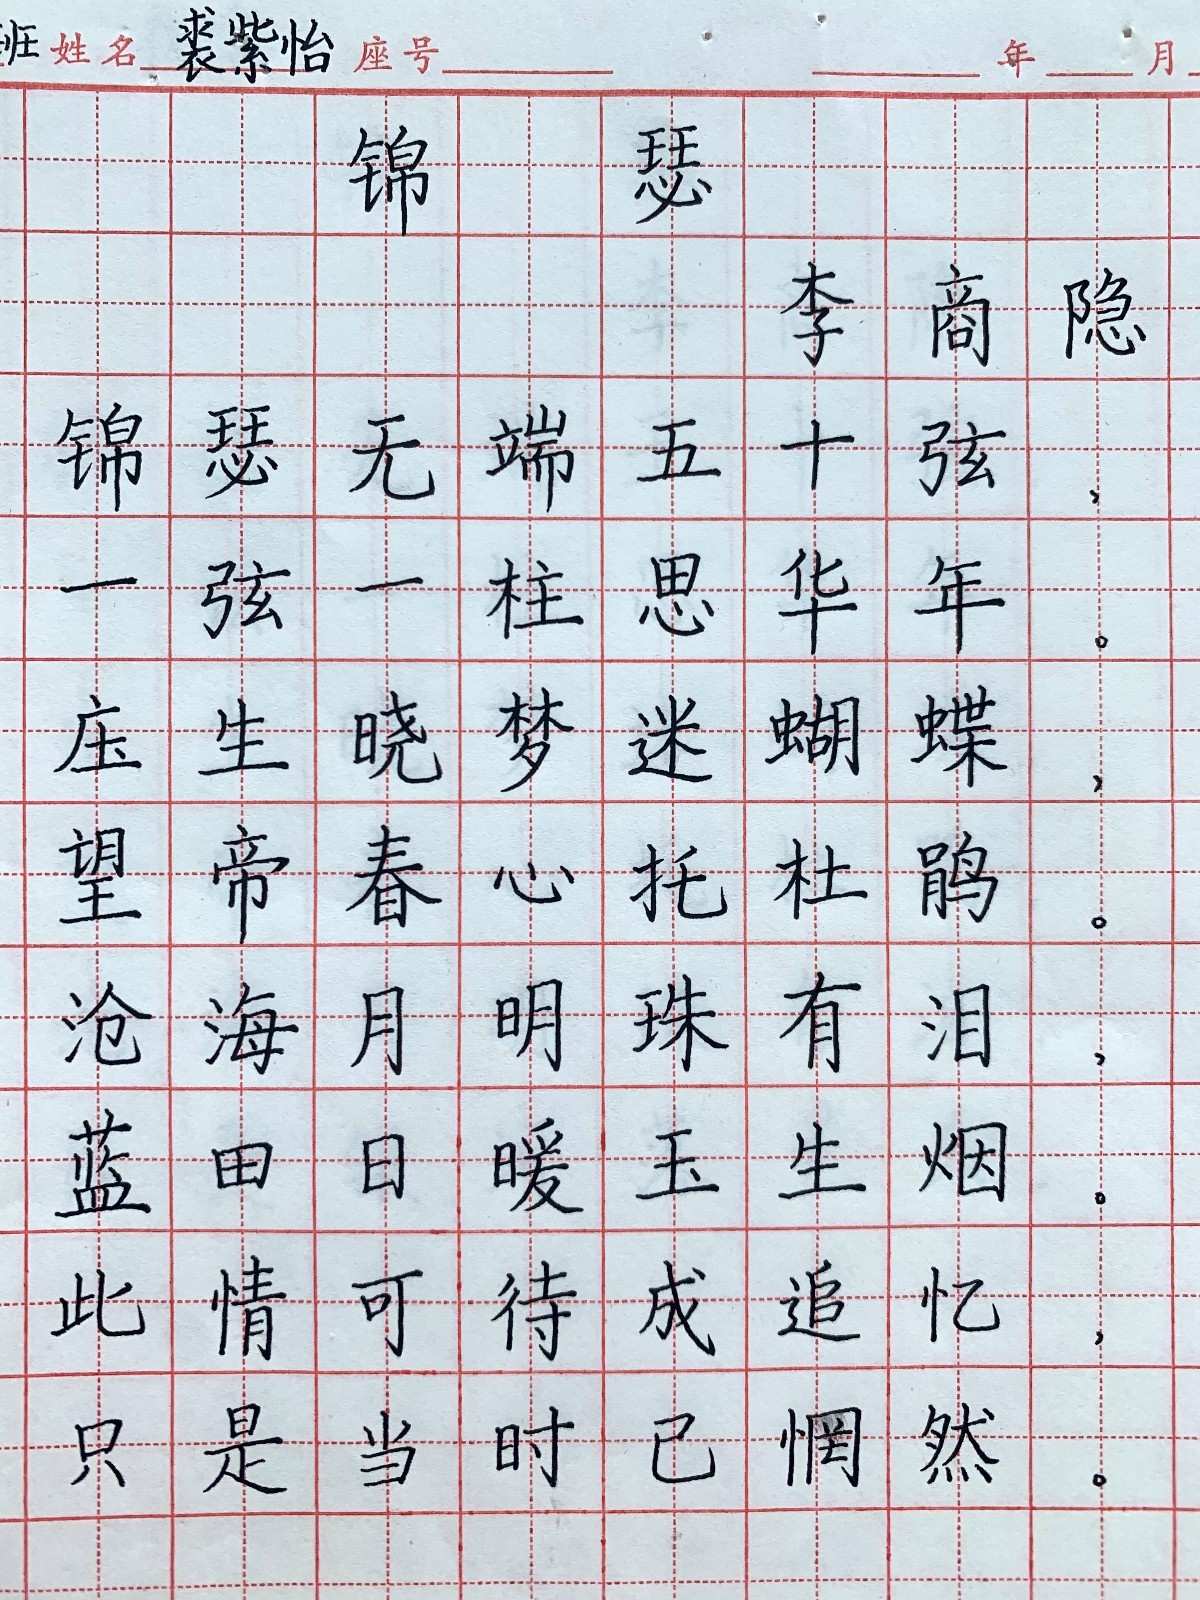 班 姓名 裘紫怡 座号 年 月
锦瑟
李商隐
锦瑟无端五十弦，
一弦一柱思华年。
庄生晓梦迷蝴蝶，
望帝春心托杜鹃。
沧海月明珠有泪，
蓝田日暖玉生烟。
此情可待成追忆，
只是当时已惘然。